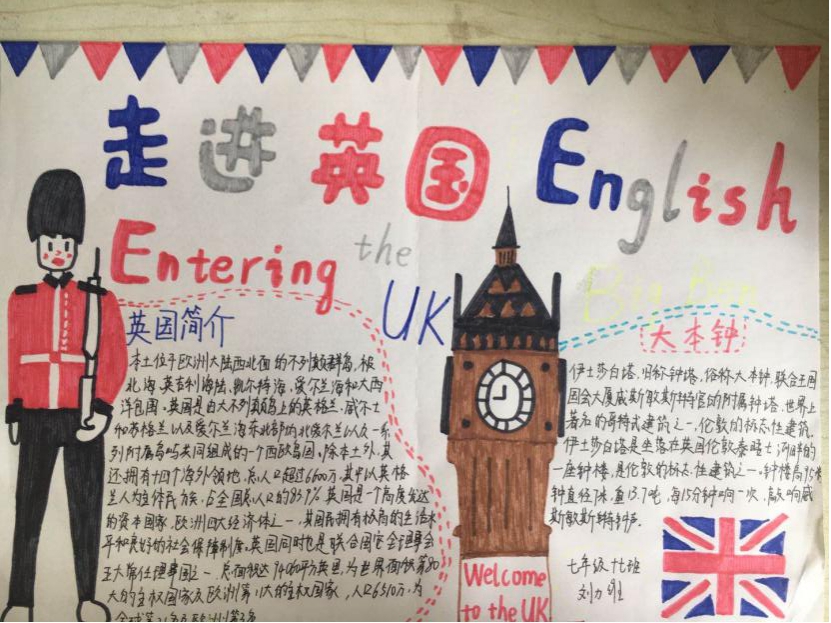 走进英国 English
Entering the UK
Big Ben
英国简介
大本钟
本土位于欧洲大陆西北面的不列颠群岛,被
北海、英吉利海陆、凯尔特海、爱尔兰海和大西
洋包围。英国是由大不列颠岛上的英格兰、威尔士
和苏格兰以及爱尔兰海东北部的北爱尔兰以及一系
列附属岛屿共同组成的一个西欧岛国。除本土外,其
还拥有十四个海外领地,总人口超过6600万,其中以英格
兰人为主体民族,占全国总人口的83.9%
英国是一个高度发达
的资本国家,欧洲四大经济体之一,其国民拥有极高的生活水
平和良好的社会保障制度。英国同时也是联合国安全理事会
五大常任理事国之一,总面积达
平方英里,为世界面积第80
大的主权国家及欧洲第11大的主权国家,人口6510万,为
伊士莎白塔,旧称钟塔,俗称大本钟,联合王国
国会大厦威斯敏斯特宫的附属钟塔,世界上
著名的哥特式建筑之一,伦敦的标志性建筑。
伊士莎白塔是坐落在英国伦敦泰晤士河畔的
一座钟楼,是伦敦的标志性建筑之一。钟楼高95米
钟直径7米,重13.7吨,每15分钟响一次,敲响威
斯敏斯特钟声.
七年级十七班
Welcome
to the UK